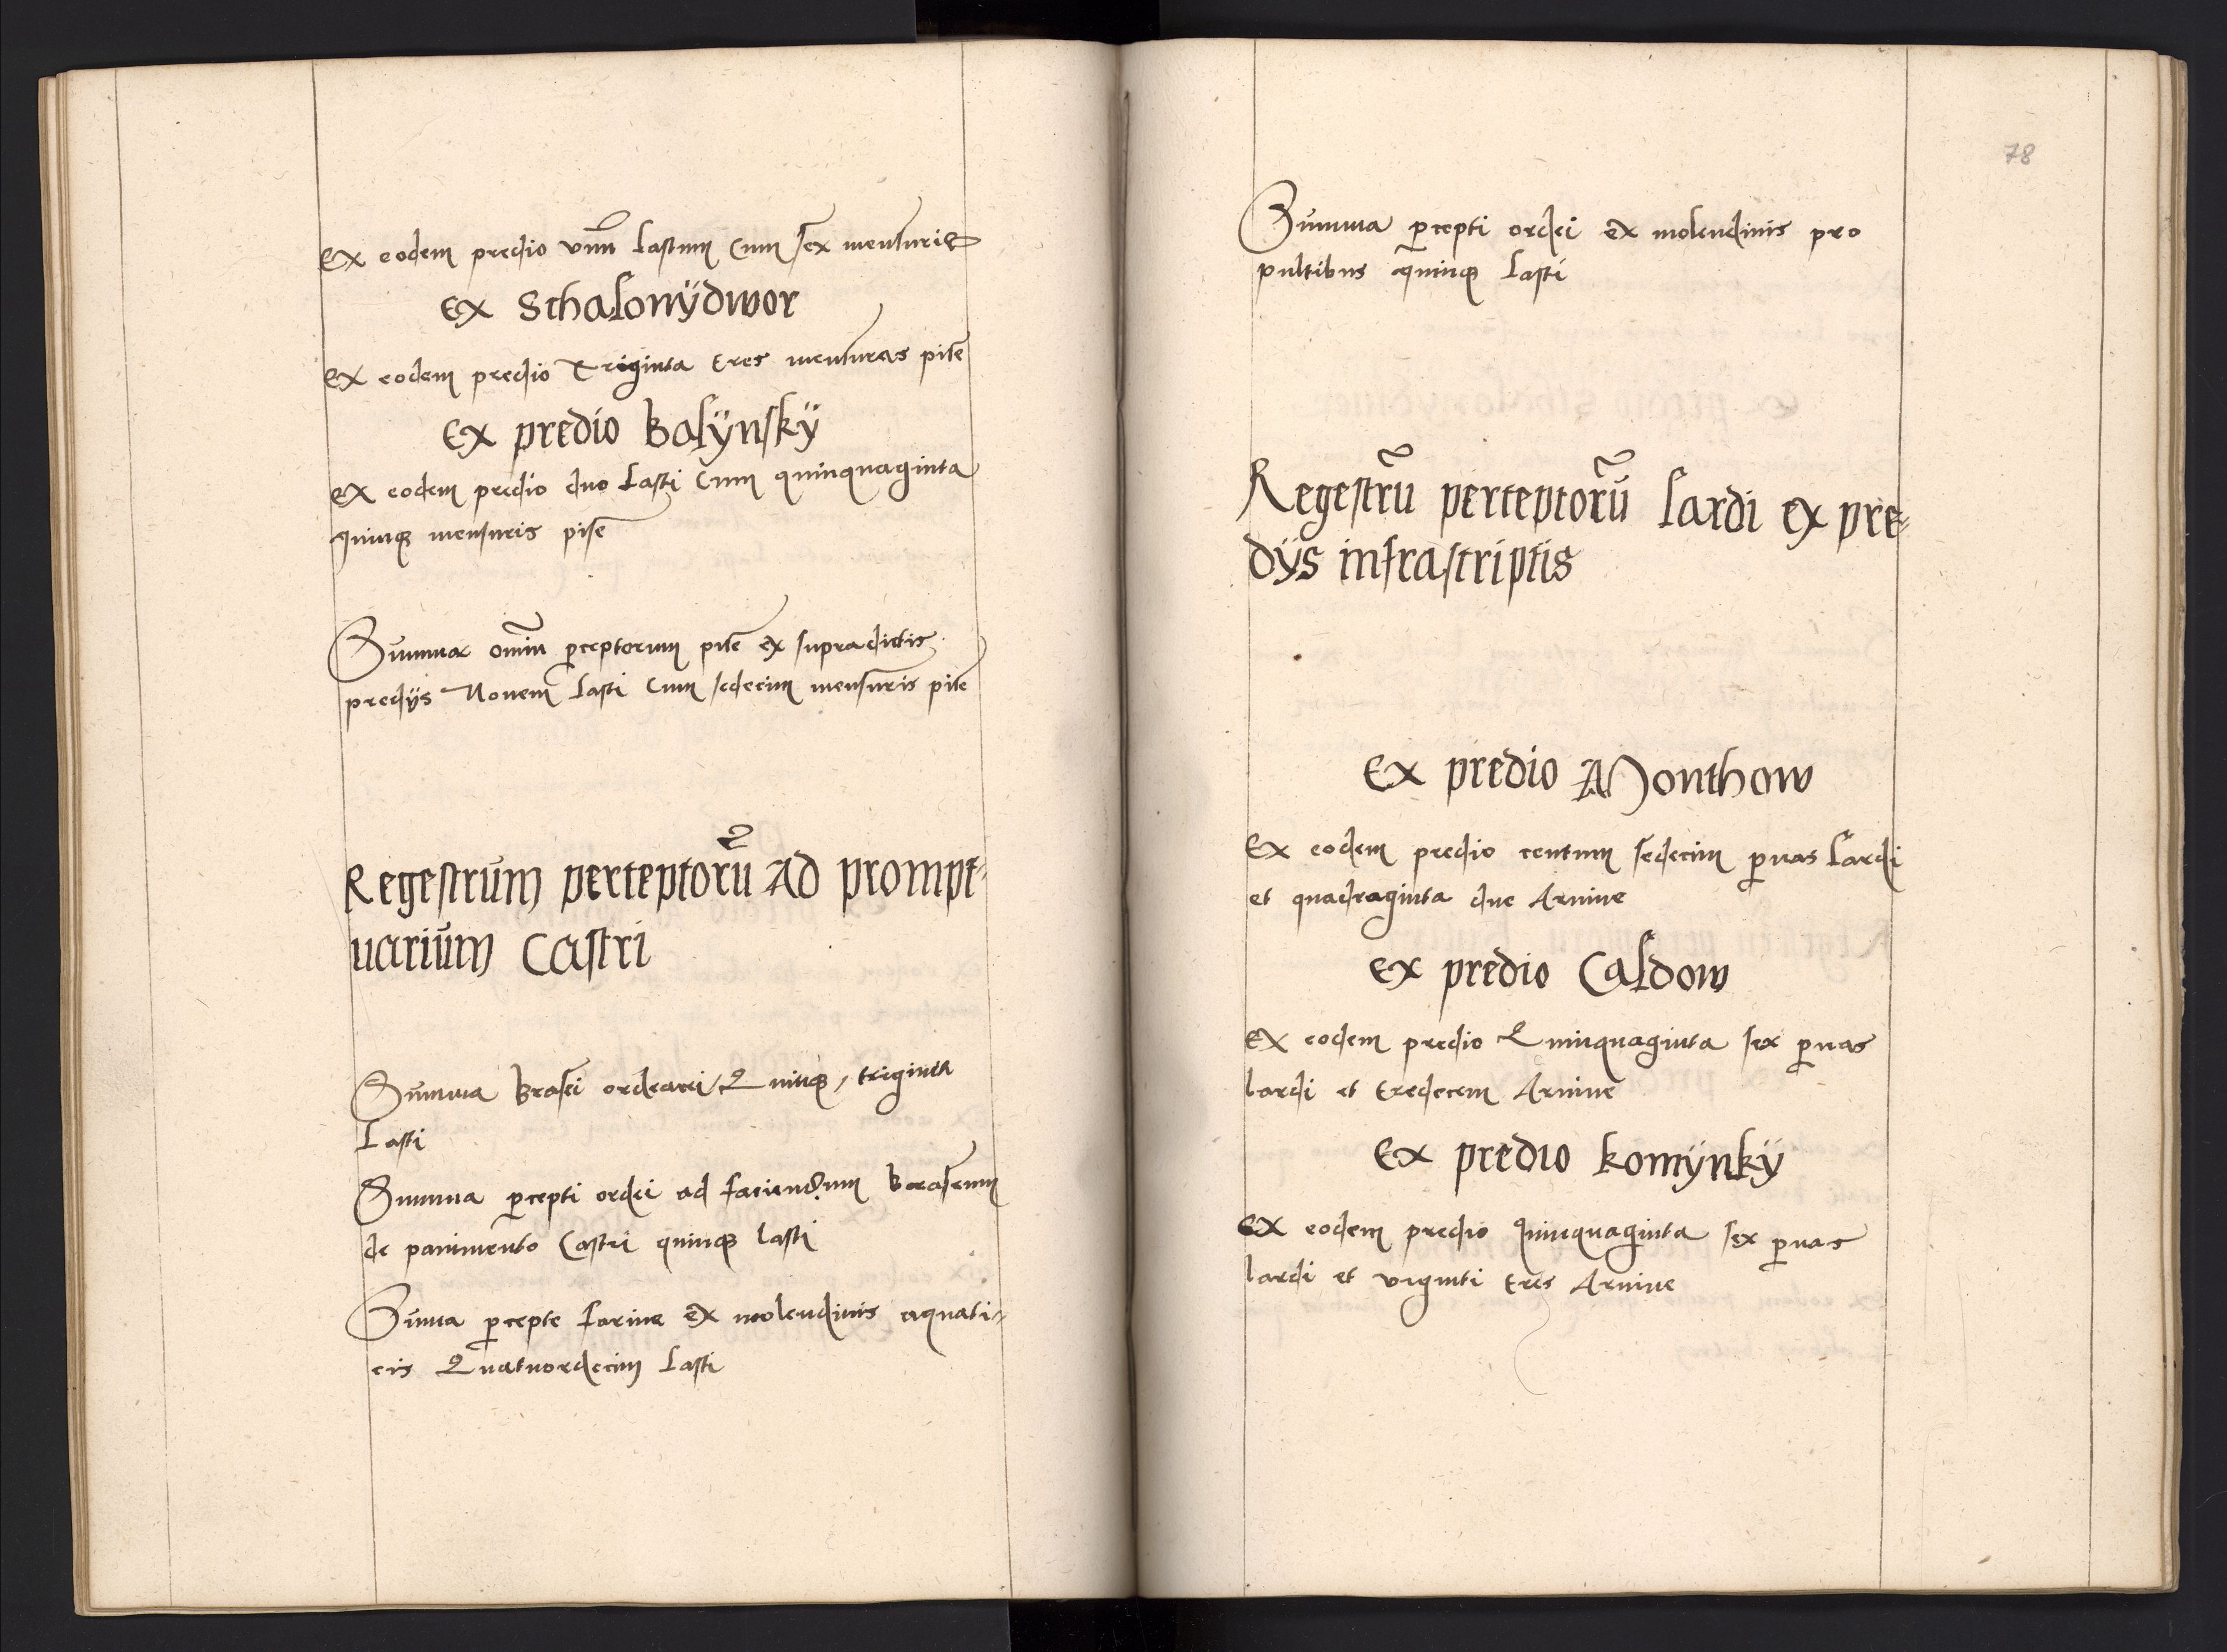 Ex eodem predio vnū lastum Cum sex mensuris
Ex Schalonÿdwor
Ex eodem predio Triginta tres mensuras pise
Ex predio Balÿnskÿ
Ex eodem predio duo lasti Cum quinquaginta
quinqȝ mensuris pise
Summa omiū perceptorum pise ex supradictis
predÿs Nouem lasti Cum sedecim mensuris pise
Regestrum perceptorū Ad prompt-
uarium Castri
Summa Brasei ordeacei Quinqȝ / triginta
Lasti
Summa percepti ordei ad faciendum Braseum
de pauimento Castri quinqȝ lasti
Suma percepte farine ex molendinis aquati-
cis Quatuordecim Lasti
78
Summa percepti ordei ex molendinis pro
pultibus quinqȝ Lasti
Regestrū perceptorū Lardi ex pre-
dÿs infrascriptis
Ex predio Monthow
Ex eodem predio centum sedecim pernas Lardi
et quadraginta due Arnine
Ex predio Caldow
Ex eodem predio Quinquaginta sex pernas
lardi et tredecem Arnine
Ex predio komÿnkÿ
Ex eodem predio Quinquaginta sex pernas
lardi et viginti tres Arnine